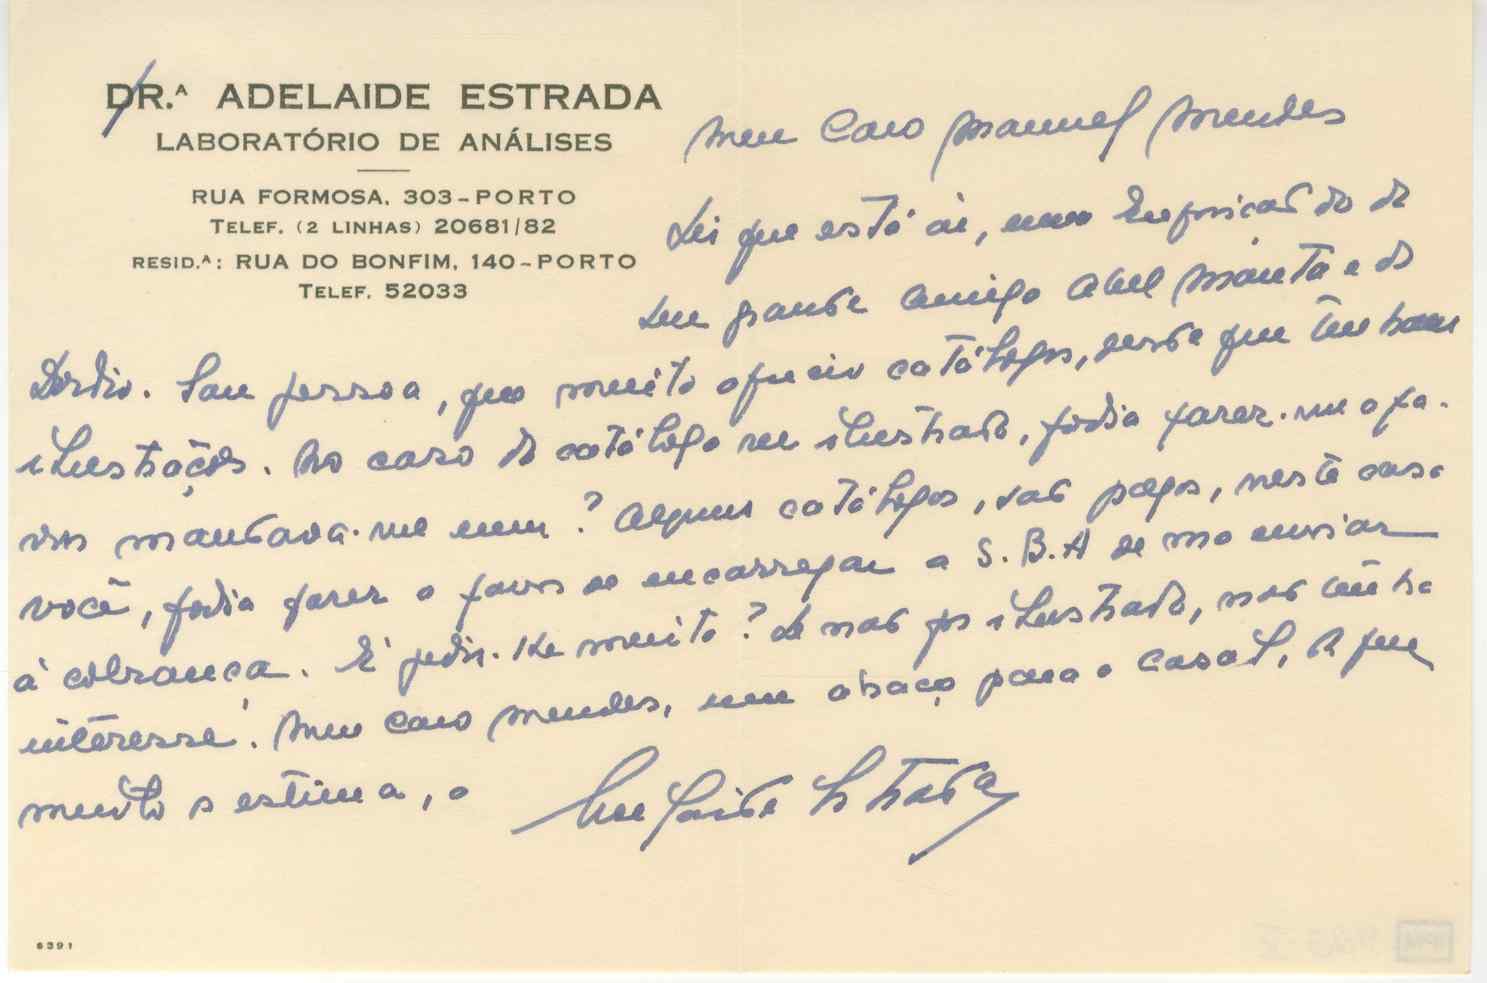 DR.ᴬ ADELAIDE ESTRADA
LABORATÓRIO DE ANÁLISES
RUA FORMOSA, 303-PORTO
TELEF. (2 LINHAS) 20681/82
RESID.ᴬ: RUA DO BONFIM, 140-PORTO
TELEF. 52033
Meu Caro Manuel Mendes
Sei que está aí, uma Exposição do
seu grande Amigo Abel Manta e do
Dordio. Sou pessoa, que muito aprecio catálogos, desde que tenham
ilustrações. No caso do catálogo ser ilustrado, podia fazer-me o fa-
vor mandava-me um? Alguns catálogos, são pagos, neste caso
você, podia fazer o favor de encarregar a S.B.A de mo enviar
à cobrança. É pedir-lhe muito? Se não for ilustrado, não tenha
interesse! Meu Caro Mendes, um abraço para o Casal, do que
muito o estima, o
Estrada
6391